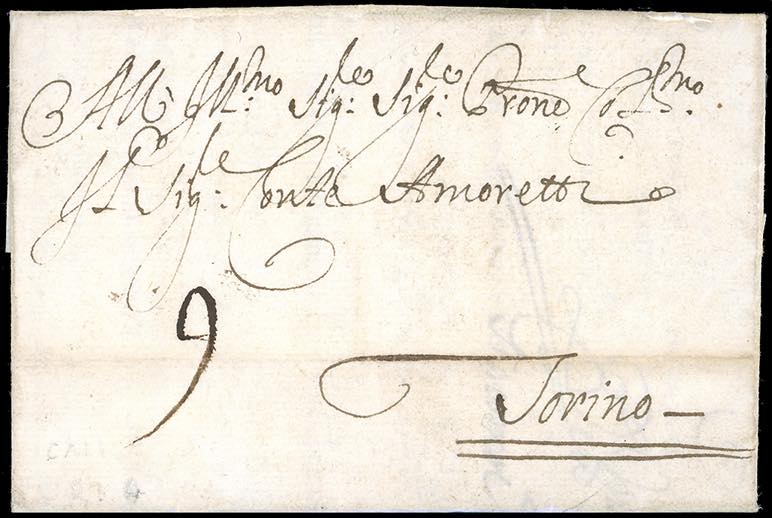 All Ill:mo Sig:re Sig:re Prone Col:mo
Il Sig:re Conte Amoretti
9
Torino